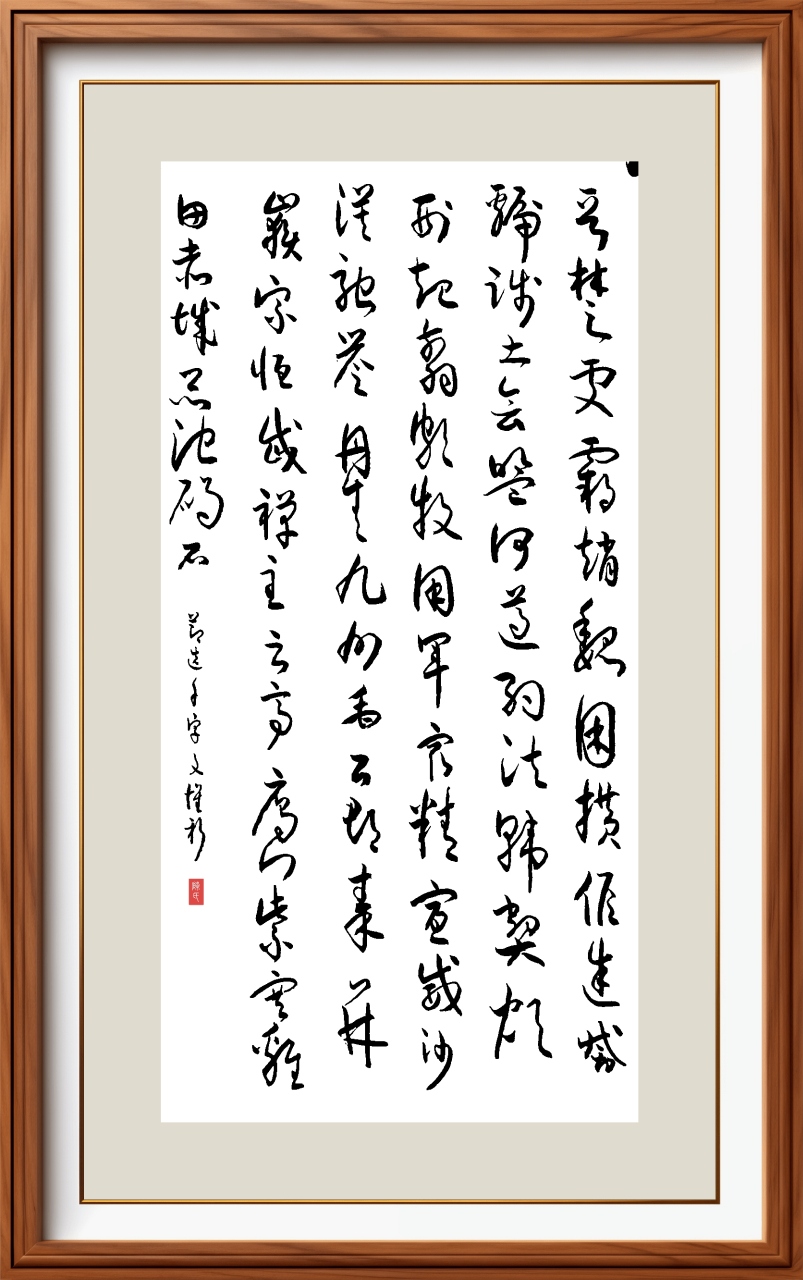 晉楚更霸趙魏困橫假途滅
虢踐土會盟何遵約法韓弊煩
刑起翦頗牧用軍最精宣威沙
漠馳譽丹青九州禹百郡秦并
嶽宗恒岱禪主云亭雁門紫塞雞
田赤城昆池碣石
節選千字文